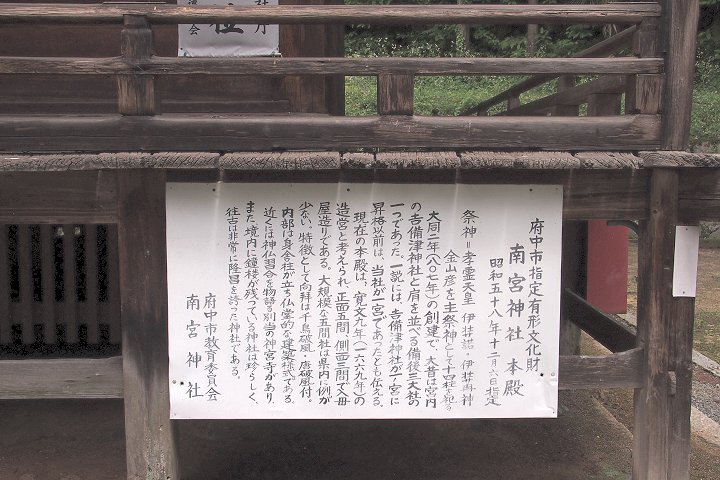 府中市指定有形文化財・
南宮神社 本殿
昭和五十八年十二月六日指定
祭神=孝霊天皇 伊弉諾・伊弉冉神
金山彦を主祭神として十六柱を祀る。
大同二年(八〇七年)の創建で、大昔は宮内
の吉備津神社と肩を並べる備後三大社の
一つであった。一説には、吉備津神社が一宮に
昇格以前は、当社が一宮であったとも伝える。
現在の本殿は、寛文九年(一六六九年)の
造営と考えられ、正面五間、側面三間で入母
屋造りである。大規模な五間社は県内に例が
少ない。特徴として向拝は千鳥破風・唐破風付。
内部は身舎柱が立ち仏堂的な建築様式である。
近くには神仏習合を物語る別当の神宮寺があり、
また、境内に鐘楼が残っている神社は珍らしく、
往古は非常に隆昌を誇った神社である。
府中市教育委員会
南宮神社